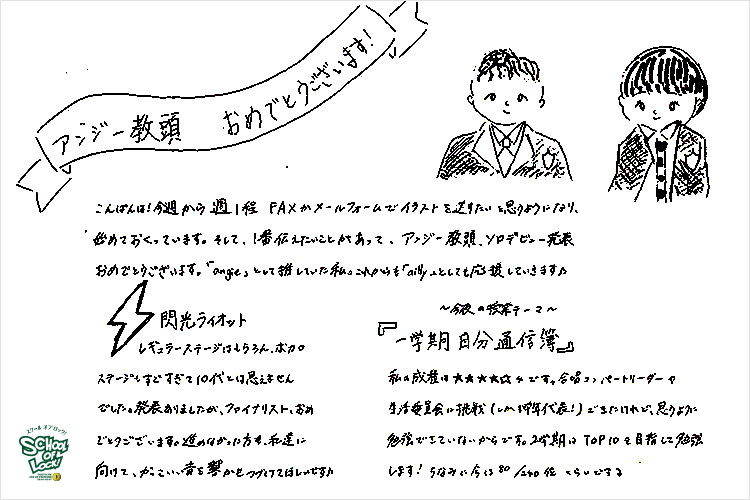 アンジー教頭 おめでとうございます!
こんばんは!今週から週1程 FAXかメールフォームでイラストを送りたいと思うようになり、
始めておくっています。そして、1番伝えたいことがあって、アンジー教頭、ソロデビュー発表
おめでとうございます。「angie」として推していた私。これからも「ailly」としても応援していきます♪
閃光ライオット
レギュラーステージはもちろん、ボカロ
ステージもすごすぎて10代とは思えません
でした。発表ありましたが、ファイナリスト、おめ
でとうございます。進めなかった方も、私達に
向けて、かっこいい音を響かせつづけてほしいです♪
〜今夜の授業テーマ〜
『一学期自分通信簿』
私の成種は★★★★☆です。合唱コンパートリーダーや
生活委員会に挑戦(しかも学年代表!)できたけれど、思うように
勉強できていないからです。2学期はTOP10を目指して勉強
します!ちなみに今は80/240位くらいです
スクール オブ ロック!
SCHOOL OF LOCK!